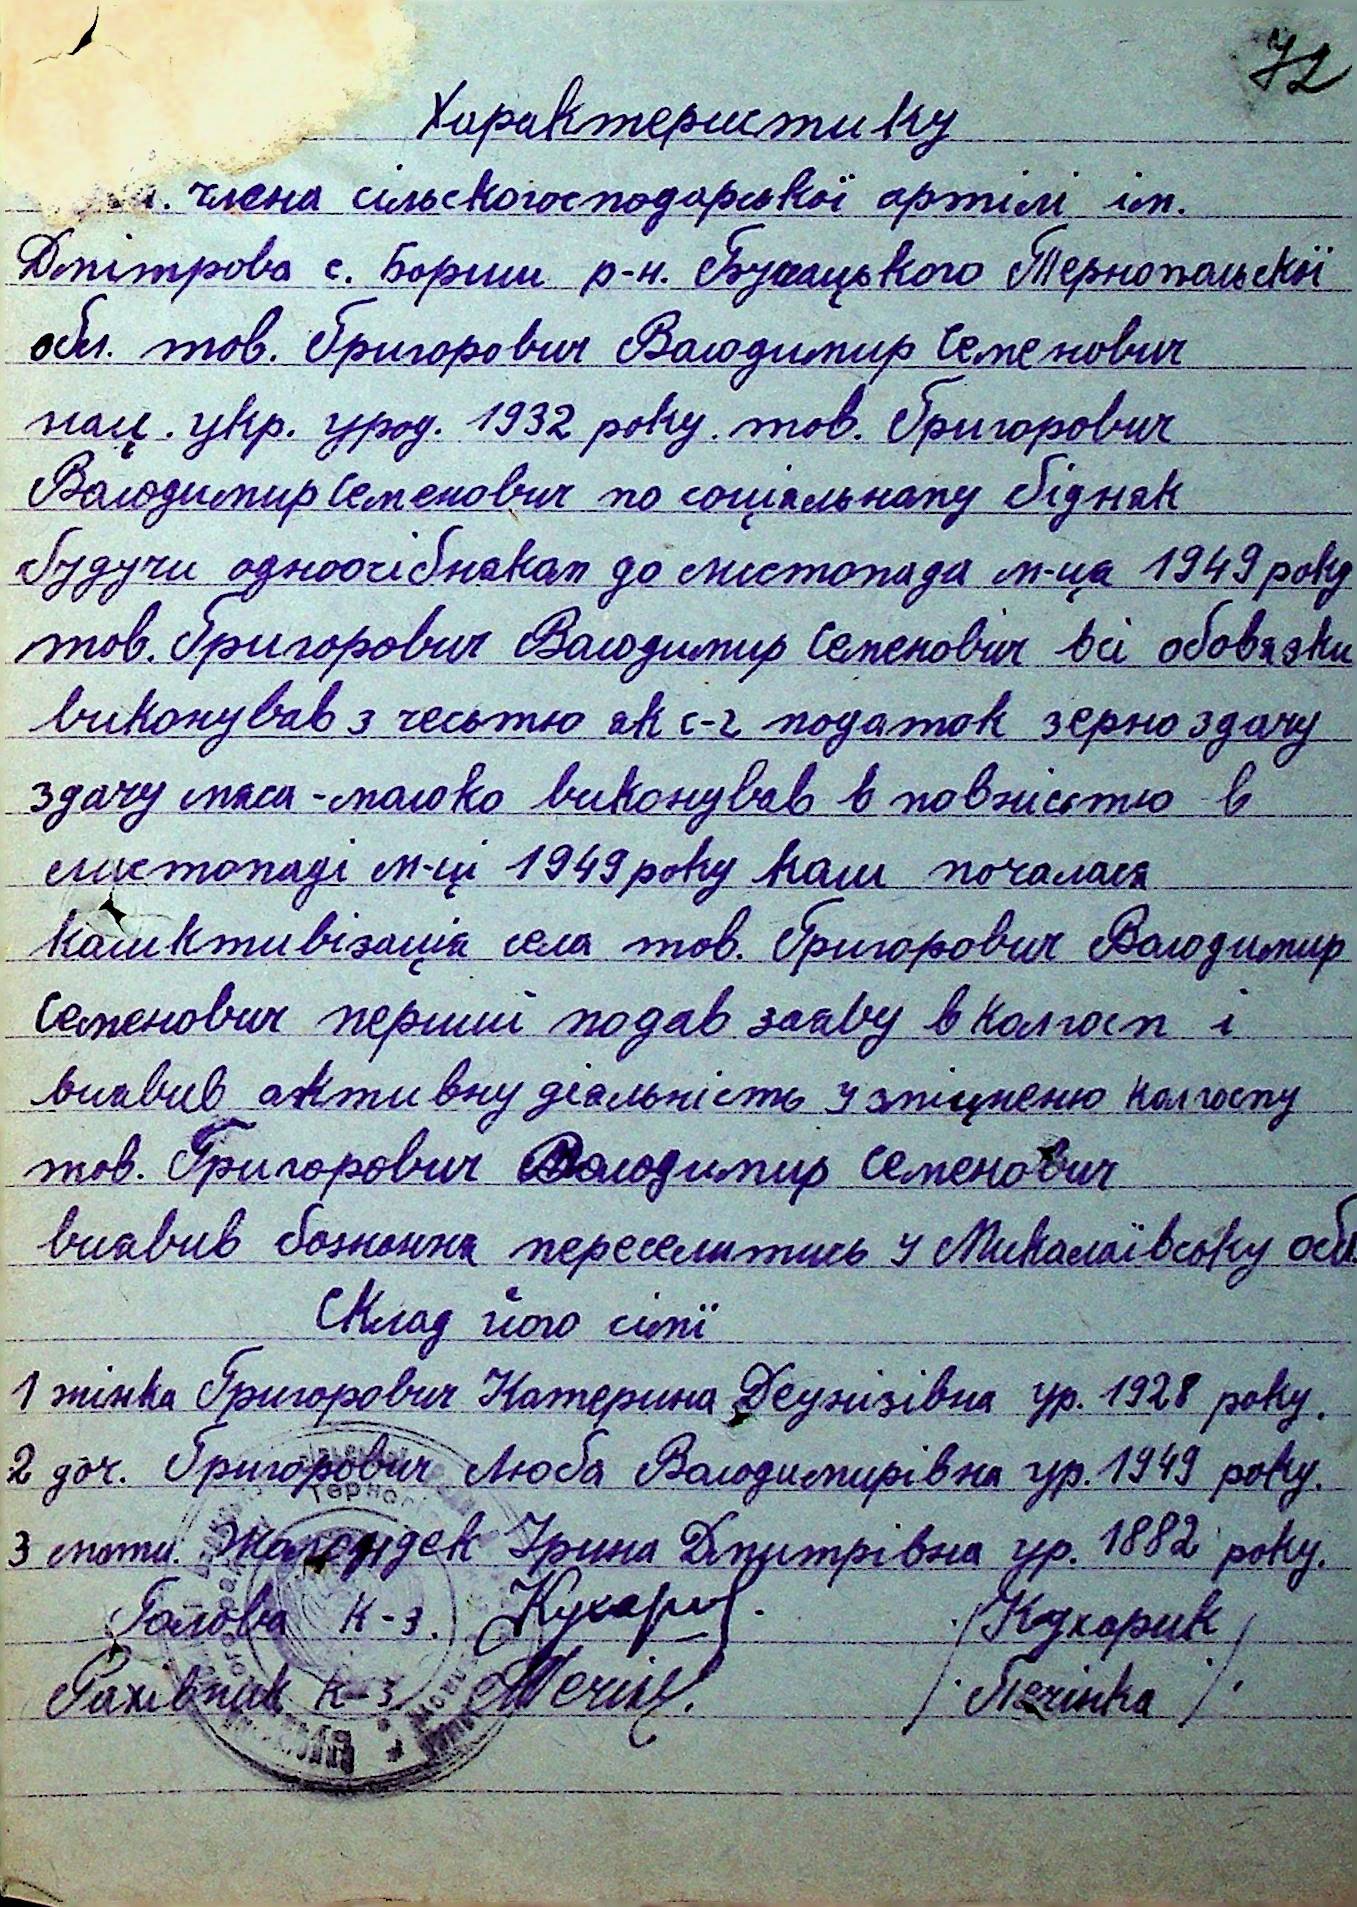 72
Характеристику
члена сільскогосподарської артілі ім.
Дмітрова с. Бориш р-н. Бучацького Тернопольскої
обл. тов. Григорович Володимир Семенович
нац. укр. урод. 1932 року. тов. Григорович
Володимир Семенович по соціальному бідняк
будучи одноосібнаком до листопада м-ця 1949 року
тов. Григорович Володимир Семеновіч всі обовязки
виконував з честью як с-г податок зерно здачу
здачу мяса-молоко виконував в повністю в
листопаді м-ці 1949 року коли почалася
колективізація села тов. Григорович Володимир
Семенович перший подав заяву в колгосп і
виявив активну діяльність у зміцненю колгоспу
тов. Григорович Володимир Семенович
виявив бажання переселитись у Миколаївську обл.
Склад його сімї
1 жінка Григорович Катерина Деунізівна ур. 1928 року.
2 доч. Григорович Люба Володимирівна ур. 1949 року.
3 мати. Ірина Дмитрівна ур. 1882 року.
Голова к-з. Кухарик /Кухарик/
Рахівник к-з Печінка /Печінка/